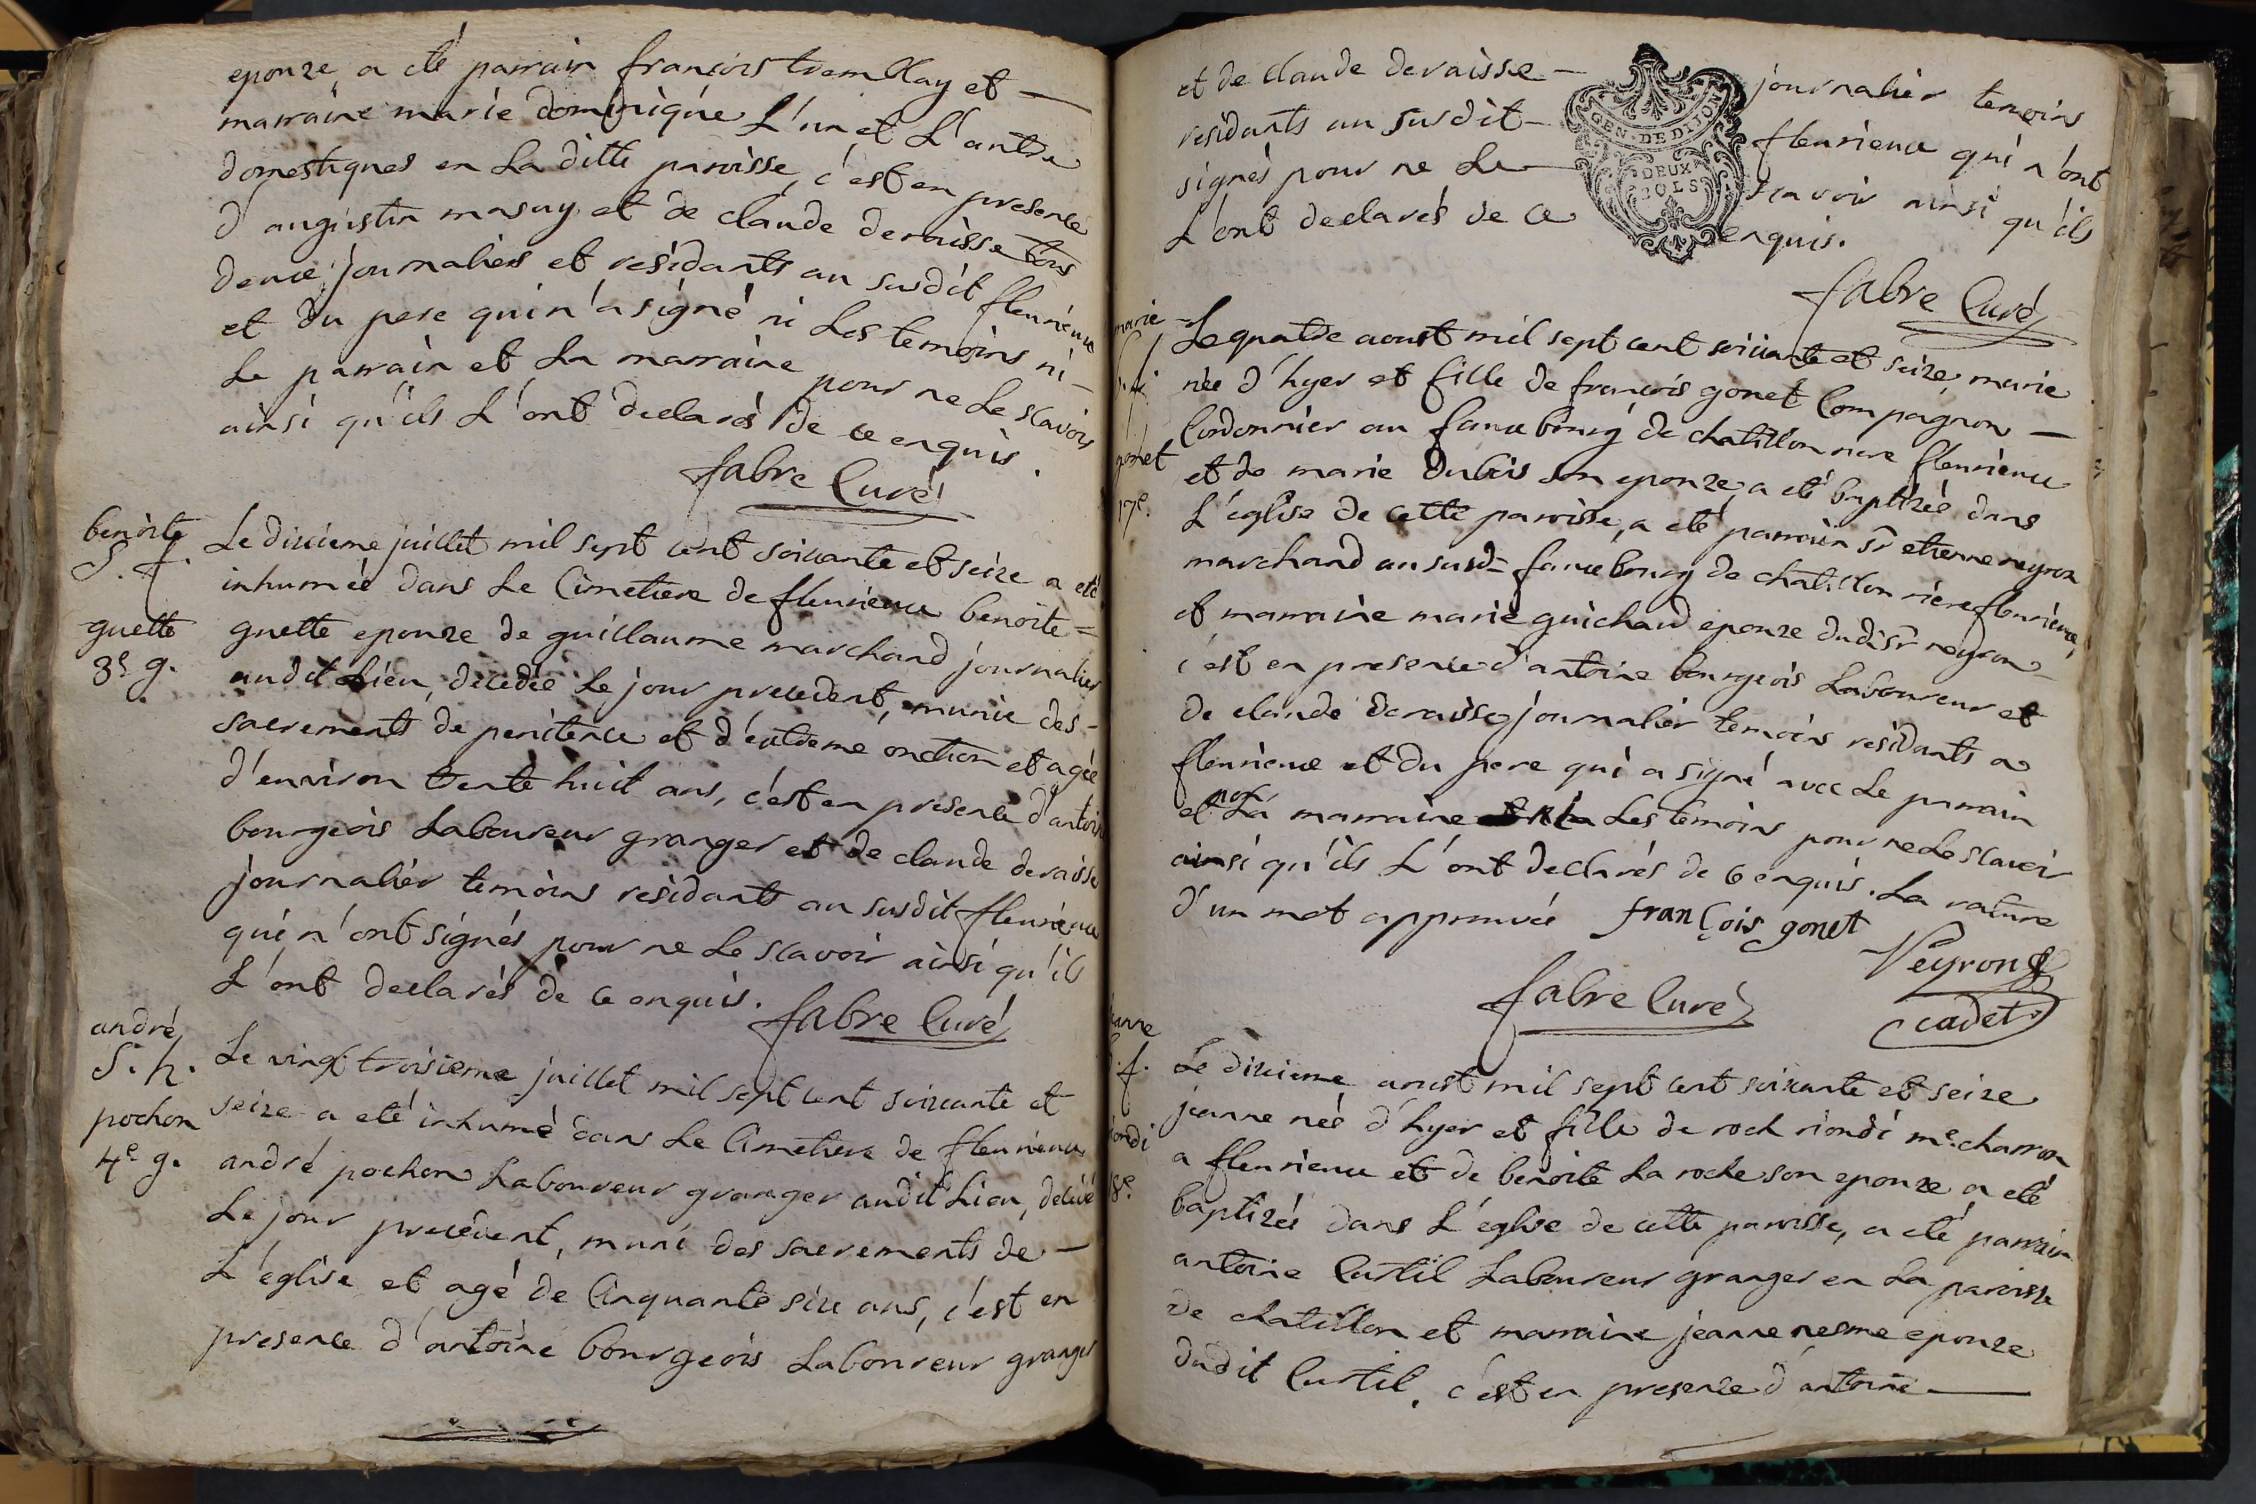 epouze a eté parrain françois tremblay et —
marraine marie dominique L'un et L'autre
domestiques en La ditte paroisse, c'est en presence
d'augustin masuy et de claude deraisse tous
deux journaliers et residants au susdit fleurieux
et du pere qui n'a signé ni Les temoins ni —
Le parrain et La marraine pour ne Le scavoir
ainsi qu'ils L'ont declarés de ce enquis.
fabre Curé
benoite
S. f.
guette
3e g.
Le dixieme juillet mil sept cent soixante et seize a eté
inhumée dans Le Cimetiere de fleurieux benoite =
guette epouze de guillaume marchand journalier
audit Lieu, decedée Le jour precedent, munie des -
sacrements de penitence et d'extreme onction et agée
d'environ trente huit ans, c'est en presence d'antoine
bourgeois Laboureur granger et de claude deraisse
journalier temoins residants au susdit fleurieux
qui n'ont signés pour ne Le scavoir ainsi qu'ils
L'ont declarés de ce enquis. fabre Curé
andré
S. h.
pochon
4e g.
Le vingt troisieme juillet mil sept cent soixante et
seize a eté inhumé dans Le Cimetiere de fleurieux
andré pochon Laboureur granger audit Lieu, decedé
Le jour precedent, muni des sacrements de —
L'église et agé de Cinquante six ans, c'est en
presence d'antoine bourgeois Laboureur granger
et de claude deraisse — journalier temoins
residants au susdit — fleurieux qui n'ont
signés pour ne Le — scavoir ainsi qu'ils
L'ont declarés de ce enquis.
GEN. DE DIJON
DEUX
SOLS
fabre Curé
marie
gonet
17e.
Le quatre aoust mil sept cent soixante et seize, marie
née d'hyer et fille de françois gonet Compagnon —
Cordonnier au fauxbourg de chatillon riere fleurieux
et de marie dubois son epouze, a eté baptizée dans
L'église de cette paroisse, a eté parrain sr etienne neyron
marchand au susdt fauxbourg de chatillon riere fleurieux,
et marraine marie guichard epouze dudi sr neyron —
c'est en presence d'antoine bourgeois Laboureur et
de claude deraisse journalier temoins residants a
fleurieux et du pere qui a signé avec Le parrain
et non La marraine Les temoins pour ne Le scavoir
ainsi qu'ils L'ont declarés de ce enquis. La rature
d'un mot approuvée françois gonet
Neyron
cadet
fabre Curé
jeanne
f.
riondi
18e.
Le dixieme aoust mil sept cent soixante et seize
jeanne née d'hyer et fille de roch riondi me. charron
a fleurieux et de benoite La roche son epouze a eté
baptizée dans L'église de cette paroisse, a eté parrain
antoine Curtil Laboureur granger en La paroisse
de chatillon et marraine jeanne nesme epouze
dudit Curtil, c'est en presence d'antoine —